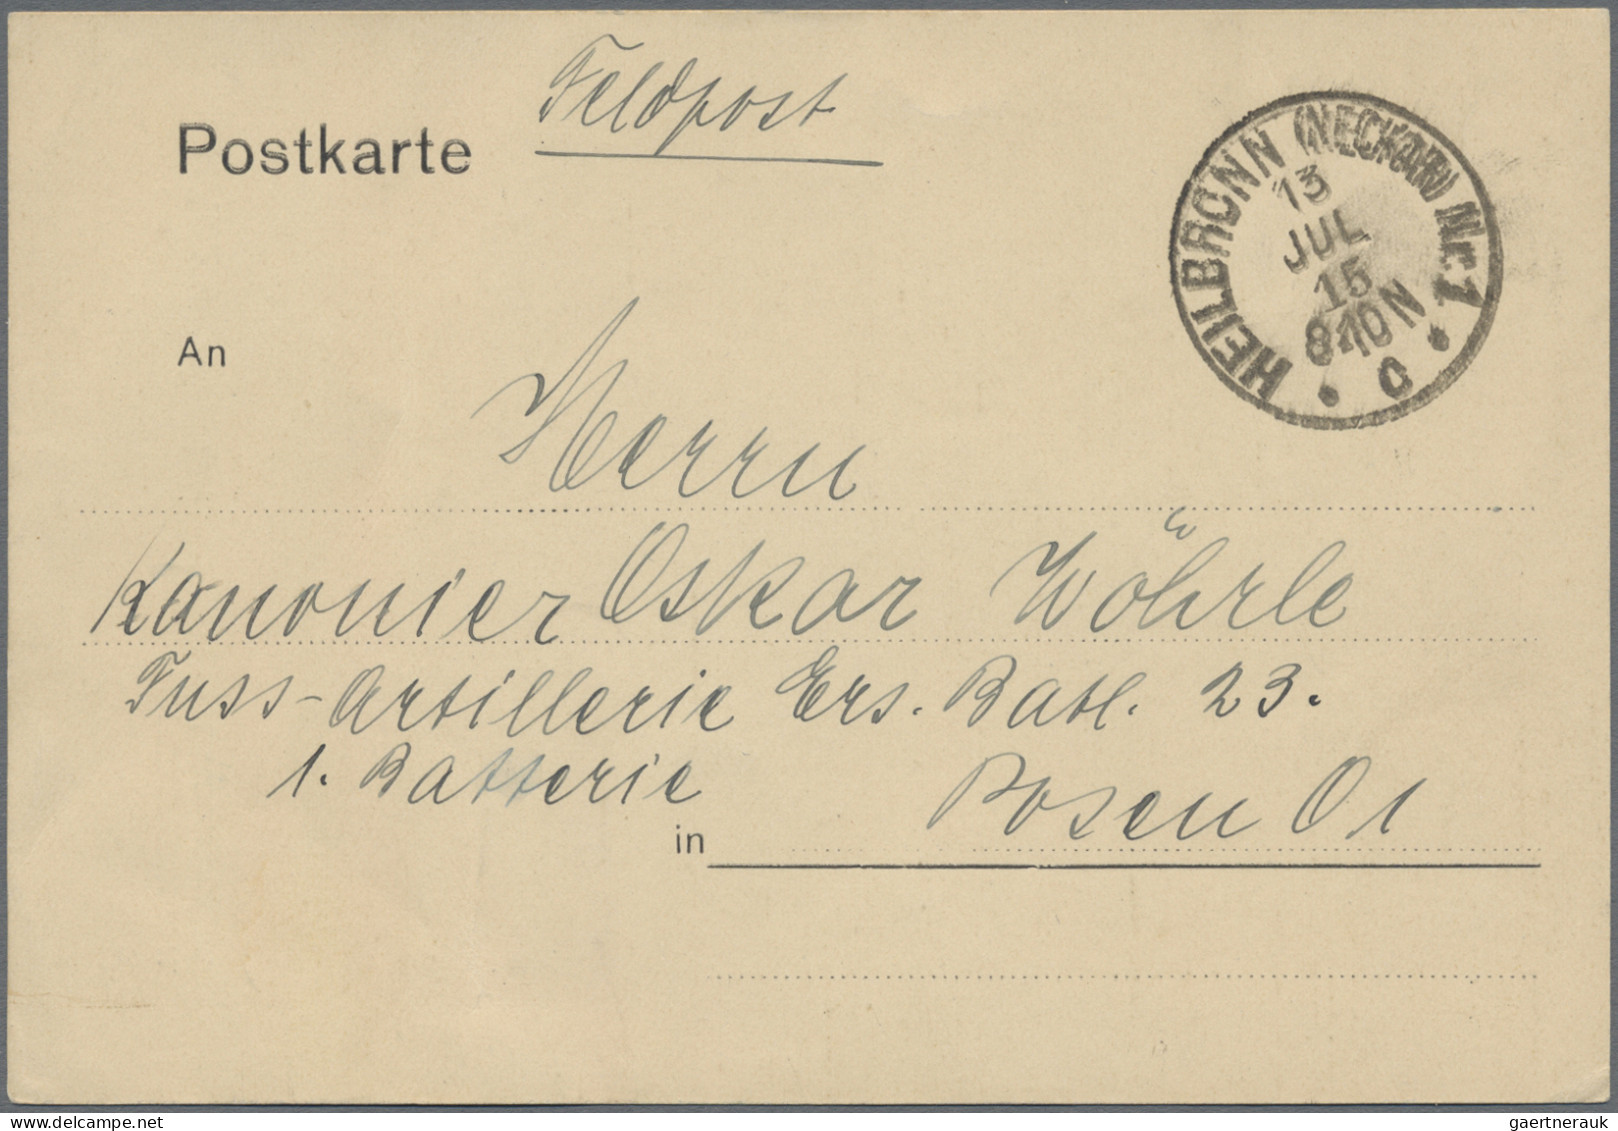 Feldpost
Postkarte
HEILBRONN (NECKAR) Nr. 1
13
JUL
15
8-10 N
* c *
An
Herrn
Kanonier Oskar Wöhrle
Fuss-Artillerie Ers. Batl. 23.
1. Batterie
in Posen O1
gaertnerauk